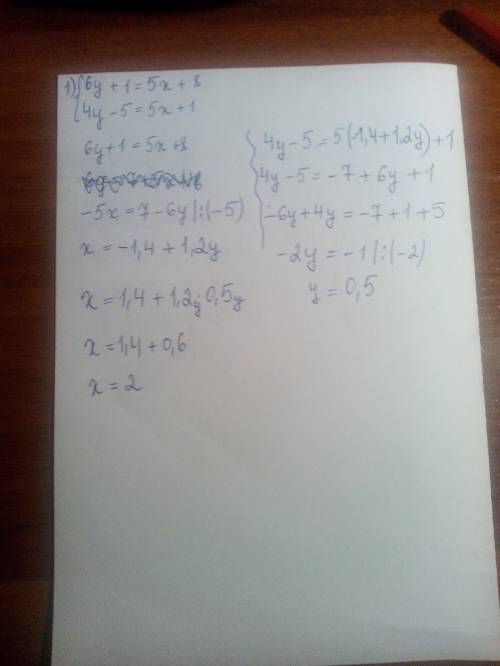 1) { 6y + 1 = 5x + 8
4y - 5 = 5x + 1
6y + 1 = 5x + 8
-5x = 7 - 6y |:(-5)
x = -1,4 + 1,2y
x = 1,4 + 1,2y · 0,5y
x = 1,4 + 0,6
x = 2
4y - 5 = 5(-1,4 + 1,2y) + 1
4y - 5 = -7 + 6y + 1
-6y + 4y = -7 + 1 + 5
-2y = -1 |:(-2)
y = 0,5